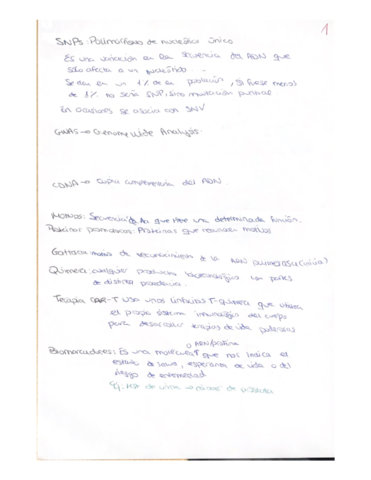 1
SNPs: Polimorfismo de nucleótido único
Es una variación en la secuencia del ADN que
sólo afecta a un nucleótido
Se da en un 1% de la población, si fuese menos
de 1% no sería SNP, sino mutación puntual
En ocasiones se asocia con SNV
GWAS → Genome Wide Analysis
cDNA → Copia complementaria del ADN
Motivos: Secuencia de Aa que tiene una determinada función.
Proteínas promotoras: Proteínas que reconocen motivos
de reconocimiento de la
Quimera: cualquier producto biotecnológico con partes
de distinta procedencia.
Terapia CAR-T usa unos linfocitos T-quimera que utiliza
el propio sistema inmunológico del cuerpo
para desarrollar terapias de vida
ADN/proteína
Biomarcadores: Es una molécula que nos indica el
estado de salud, esperanza de vida o del
riesgo de enfermedad
Ej: test de orina → cáncer de